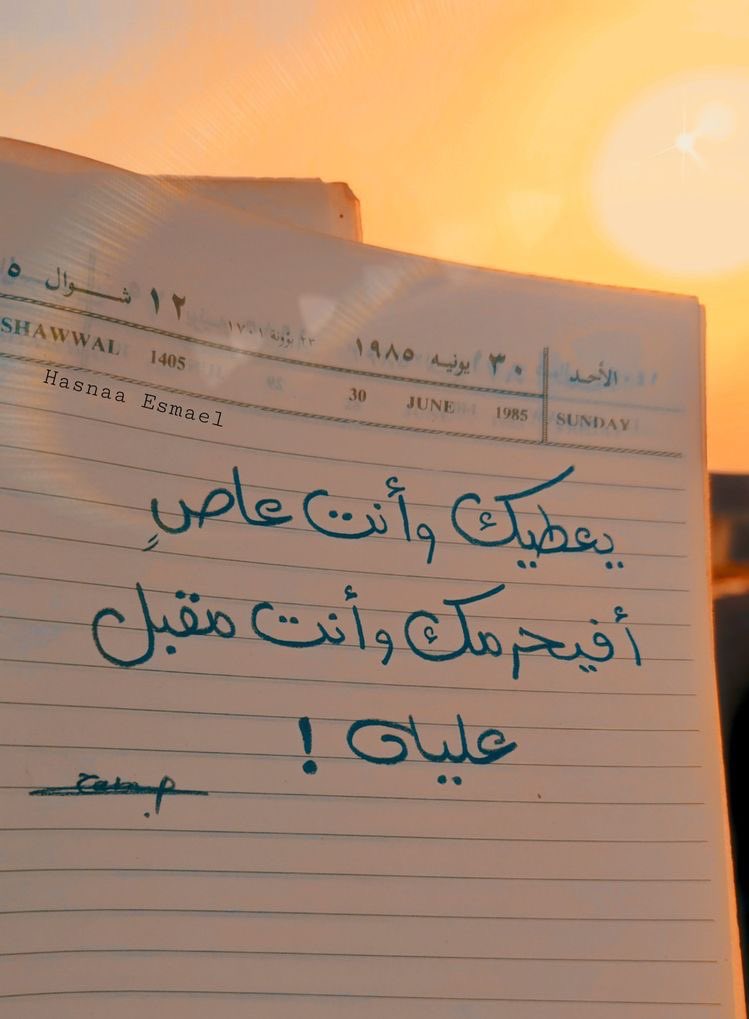 ١٢ شوال ٥
٢٣ بؤونة ١٧٠١
٣٠ يونيه ١٩٨٥
الأحد
SHAWWAL 1405
30 JUNE 1985
SUNDAY
Hasnaa Esmael
يعطيك وأنت عاصٍ
أفيحرمك وأنت مقبل
عليه !